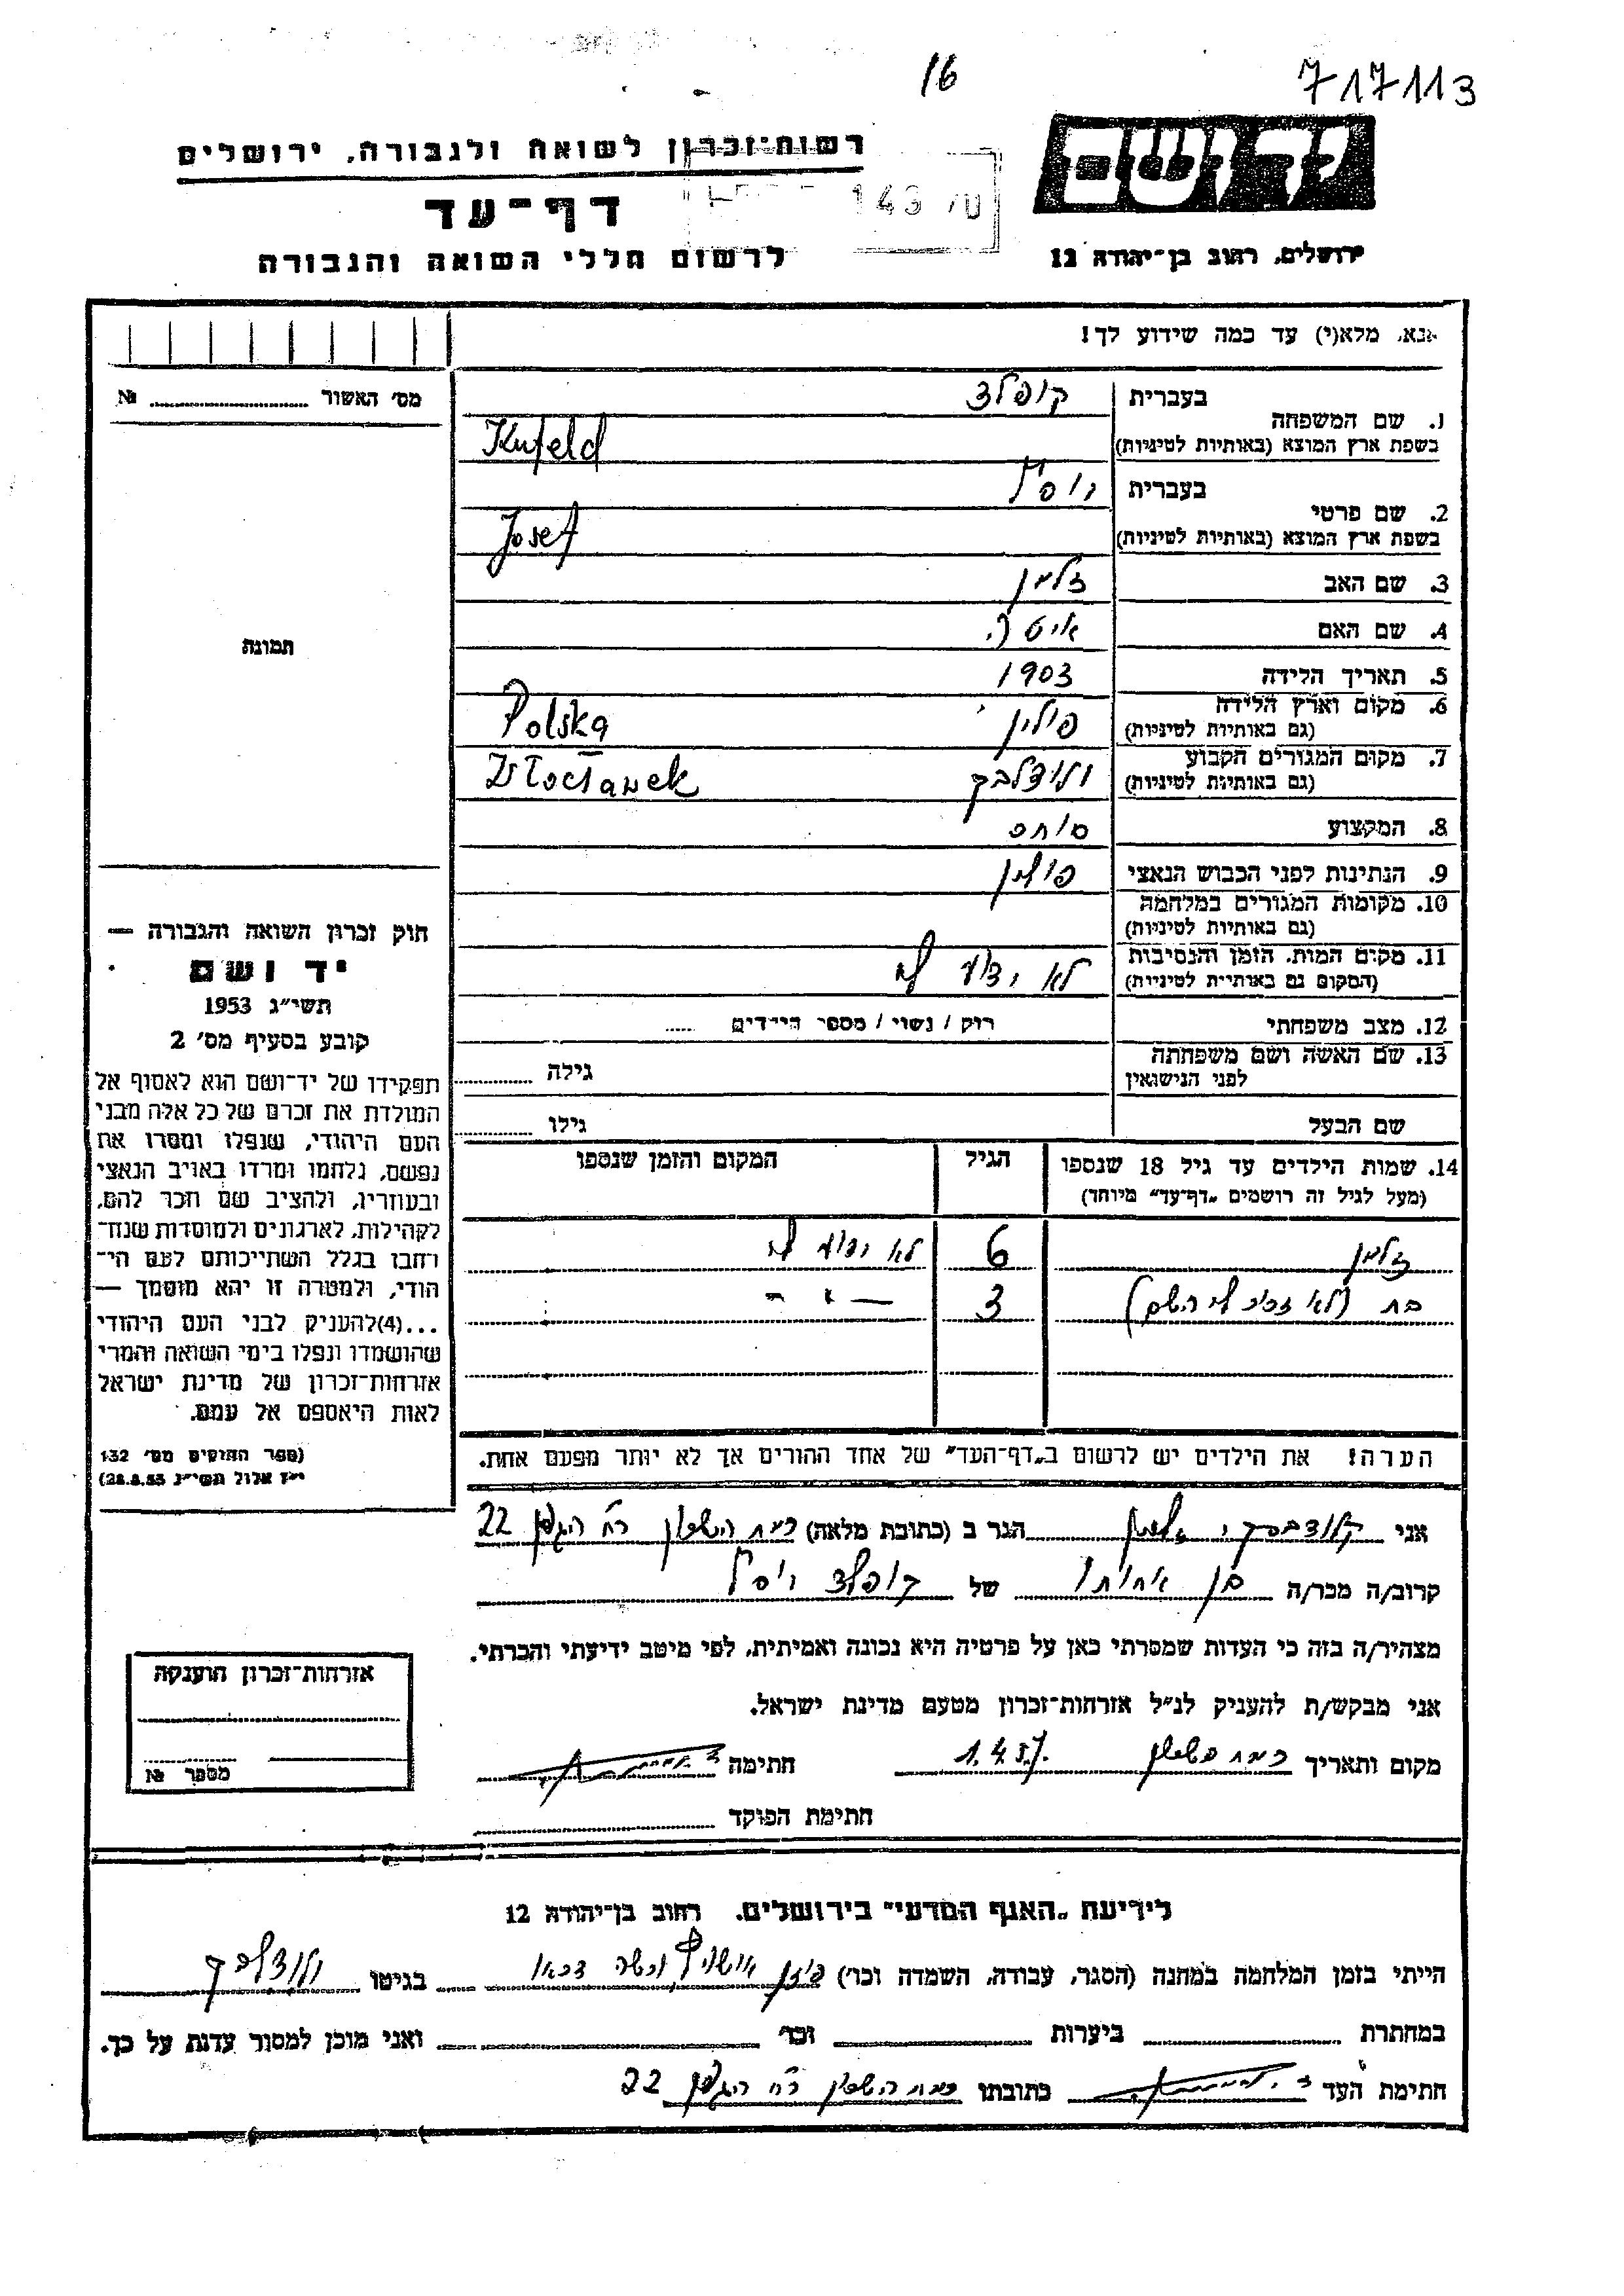 16
717113
רשות־זכרון לשואה ולגבורה, ירושלים
יד ושם
דף־עד
143
לרשום חללי השואה והגבורה
ירושלים, רחוב בן־יהודה 12
אנא, מלא(י) עד כמה שידוע לך!
מס' האשור № ........
1. שם המשפחה
בעברית קופלד
בשפת ארץ המוצא (באותיות לטיניות) Kufeld
2. שם פרטי
בעברית יוסף
בשפת ארץ המוצא (באותיות לטיניות) Josef
3. שם האב זלמן
4. שם האם
5. תאריך הלידה 1903
6. מקום וארץ הלידה פולין Polska
(גם באותיות לטיניות)
7. מקום המגורים הקבוע ולוצלבק Włocławek
(גם באותיות לטיניות)
8. המקצוע סוחר
9. הנתינות לפני הכבוש הנאצי פולין
10. מקומות המגורים במלחמה
(גם באותיות לטיניות)
11. מקום המות, הזמן והנסיבות לא ידוע לי
(המקום גם באותיות לטיניות)
12. מצב משפחתי רוק / נשוי / מספר הילדים .....
13. שם האשה ושם משפחתה גילה ........
לפני הנישואין
שם הבעל גילו ........
14. שמות הילדים עד גיל 18 שנספו הגיל המקום והזמן שנספו
(מעל לגיל זה רושמים „דף־עד” מיוחד)
זלמן 6 לא ידוע לי
בת (לא זכור לי השם) 3 — " —
הערה! את הילדים יש לרשום ב„דף־העד” של אחד ההורים אך לא יותר מפעם אחת.
תמונה
חוק זכרון השואה והגבורה —
יד ושם
תשי"ג 1953
קובע בסעיף מס' 2
תפקידו של יד־ושם הוא לאסוף אל
המולדת את זכרם של כל אלה מבני
העם היהודי, שנפלו ומסרו את
נפשם, נלחמו ומרדו באויב הנאצי
ובעוזריו, ולהציב שם וזכר להם,
לקהילות, לארגונים ולמוסדות שנח־
רחבו בגלל השתייכותם לעם הי־
הודי, ולמטרה זו יהא מוסמך —
...(4) להעניק לבני העם היהודי
שהושמדו ונפלו בימי השואה והמרי
אזרחות־זכרון של מדינת ישראל
לאות היאספם אל עמם.
(ספר החוקים מס' 132
י"ז אלול תשי"ג 28.8.53)
אני זלמן הגר ב (כתובת מלאה) רמת השרון רח' הגפן 22
קרוב/ה מכר/ה בן אחותו של קופלד יוסף
מצהיר/ה בזה כי העדות שמסרתי כאן על פרטיה היא נכונה ואמיתית, לפי מיטב ידיעתי והכרתי.
אני מבקש/ת להעניק לנ"ל אזרחות־זכרון מטעם מדינת ישראל.
מקום ותאריך רמת השרון 1.4.57 חתימה
חתימת הפוקד
אזרחות־זכרון הוענקה
מספר №
לידיעת „האגף המדעי” בירושלים, רחוב בן־יהודה 12
הייתי בזמן המלחמה במחנה (הסגר, עבודה, השמדה וכו') פוזן אושויץ דכאו בגיטו ולוצלבק
במחתרת ביערות וכו' ואני מוכן למסור עדות על כך.
חתימת העד כתובתו רמת השרון רח' הגפן 22